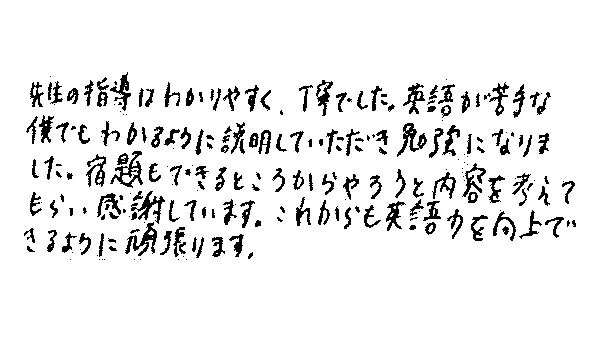 先生の指導はわかりやすく、丁寧でした。英語が苦手な
僕でもわかるように説明していただき勉強になりま
した。宿題もできるところからやろうと内容を考えて
もらい感謝しています。これからも英語力を向上で
きるように頑張ります。